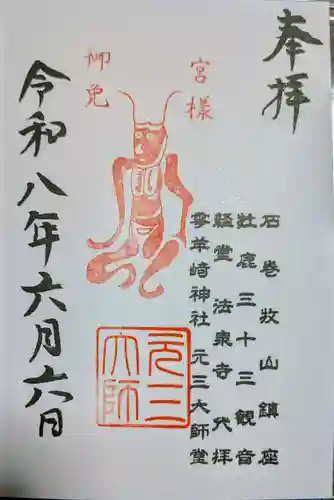 奉拝
石巻牧山鎮座
牡鹿三十三観音
経堂 法泉寺 代拝
零羊崎神社 元三大師堂
宮様
御免
元三大師
令和八年六月六日